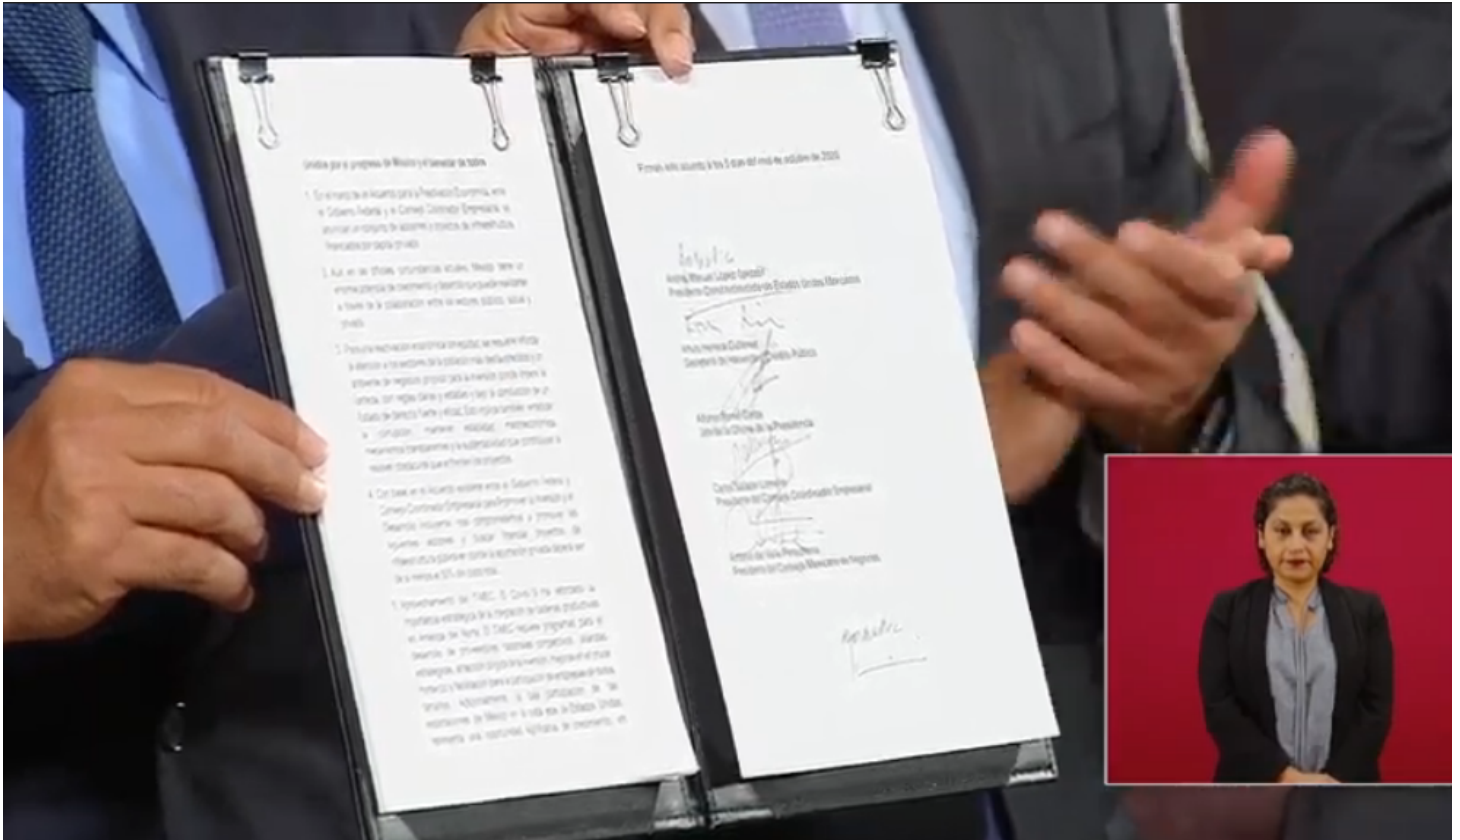 Unidos por el progreso de México y el bienestar de todos
1. En el marco de un Acuerdo para la Reactivación Económica, entre
el Gobierno Federal y el Consejo Coordinador Empresarial, se
anuncian un conjunto de acciones y proyectos de infraestructura
financiados por capital privado.
2. Aun en las difíciles circunstancias actuales, México tiene un
enorme potencial de crecimiento y desarrollo que puede realizarse
a través de la colaboración entre los sectores público, social y
privado.
3. Para una reactivación económica con equidad, se requiere
la atención a los sectores de la población más desfavorecidos y un
ambiente de negocios propicio para la inversión donde impere la
confianza, con reglas claras y estables y bajo la conducción de un
Estado de derecho fuerte y eficaz. Esto implica también erradicar
la corrupción, mantener estabilidad macroeconómica,
mecanismos transparentes y la sustentabilidad que contribuyan a
resolver obstáculos que enfrentan los proyectos.
4. Con base en el Acuerdo existente entre el Gobierno Federal y
Consejo Coordinador Empresarial para Promover la Inversión y el
Desarrollo Incluyente nos comprometemos a promover las
siguientes acciones y buscar financiar proyectos de
infraestructura pública en donde la aportación privada deberá ser
de al menos el 50% en cada caso.
5. Aprovechamiento del TMEC. El Covid-19 ha reforzado la
importancia estratégica de la integración de cadenas productivas
en América del Norte. El TMEC requiere programas para el
desarrollo de proveedores nacionales competitivos, alianzas
estratégicas, atracción de la inversión, mejoras en el cruce
fronterizo y facilitación para la participación de empresas de todos
tamaños. Adicionalmente, la baja participación de las
exportaciones de México en la costa este de Estados Unidos
representa una oportunidad significativa de crecimiento, en
Firman este acuerdo a los 5 días del mes de octubre de 2020.
Andrés Manuel López Obrador
Presidente Constitucional de Estados Unidos Mexicanos
Arturo Herrera Gutiérrez
Secretario de Hacienda y Crédito Público
Alfonso Romo Garza
Jefe de la Oficina de la Presidencia
Carlos Salazar Lomelín
Presidente del Consejo Coordinador Empresarial
Antonio del Valle Perochena
Presidente del Consejo Mexicano de Negocios